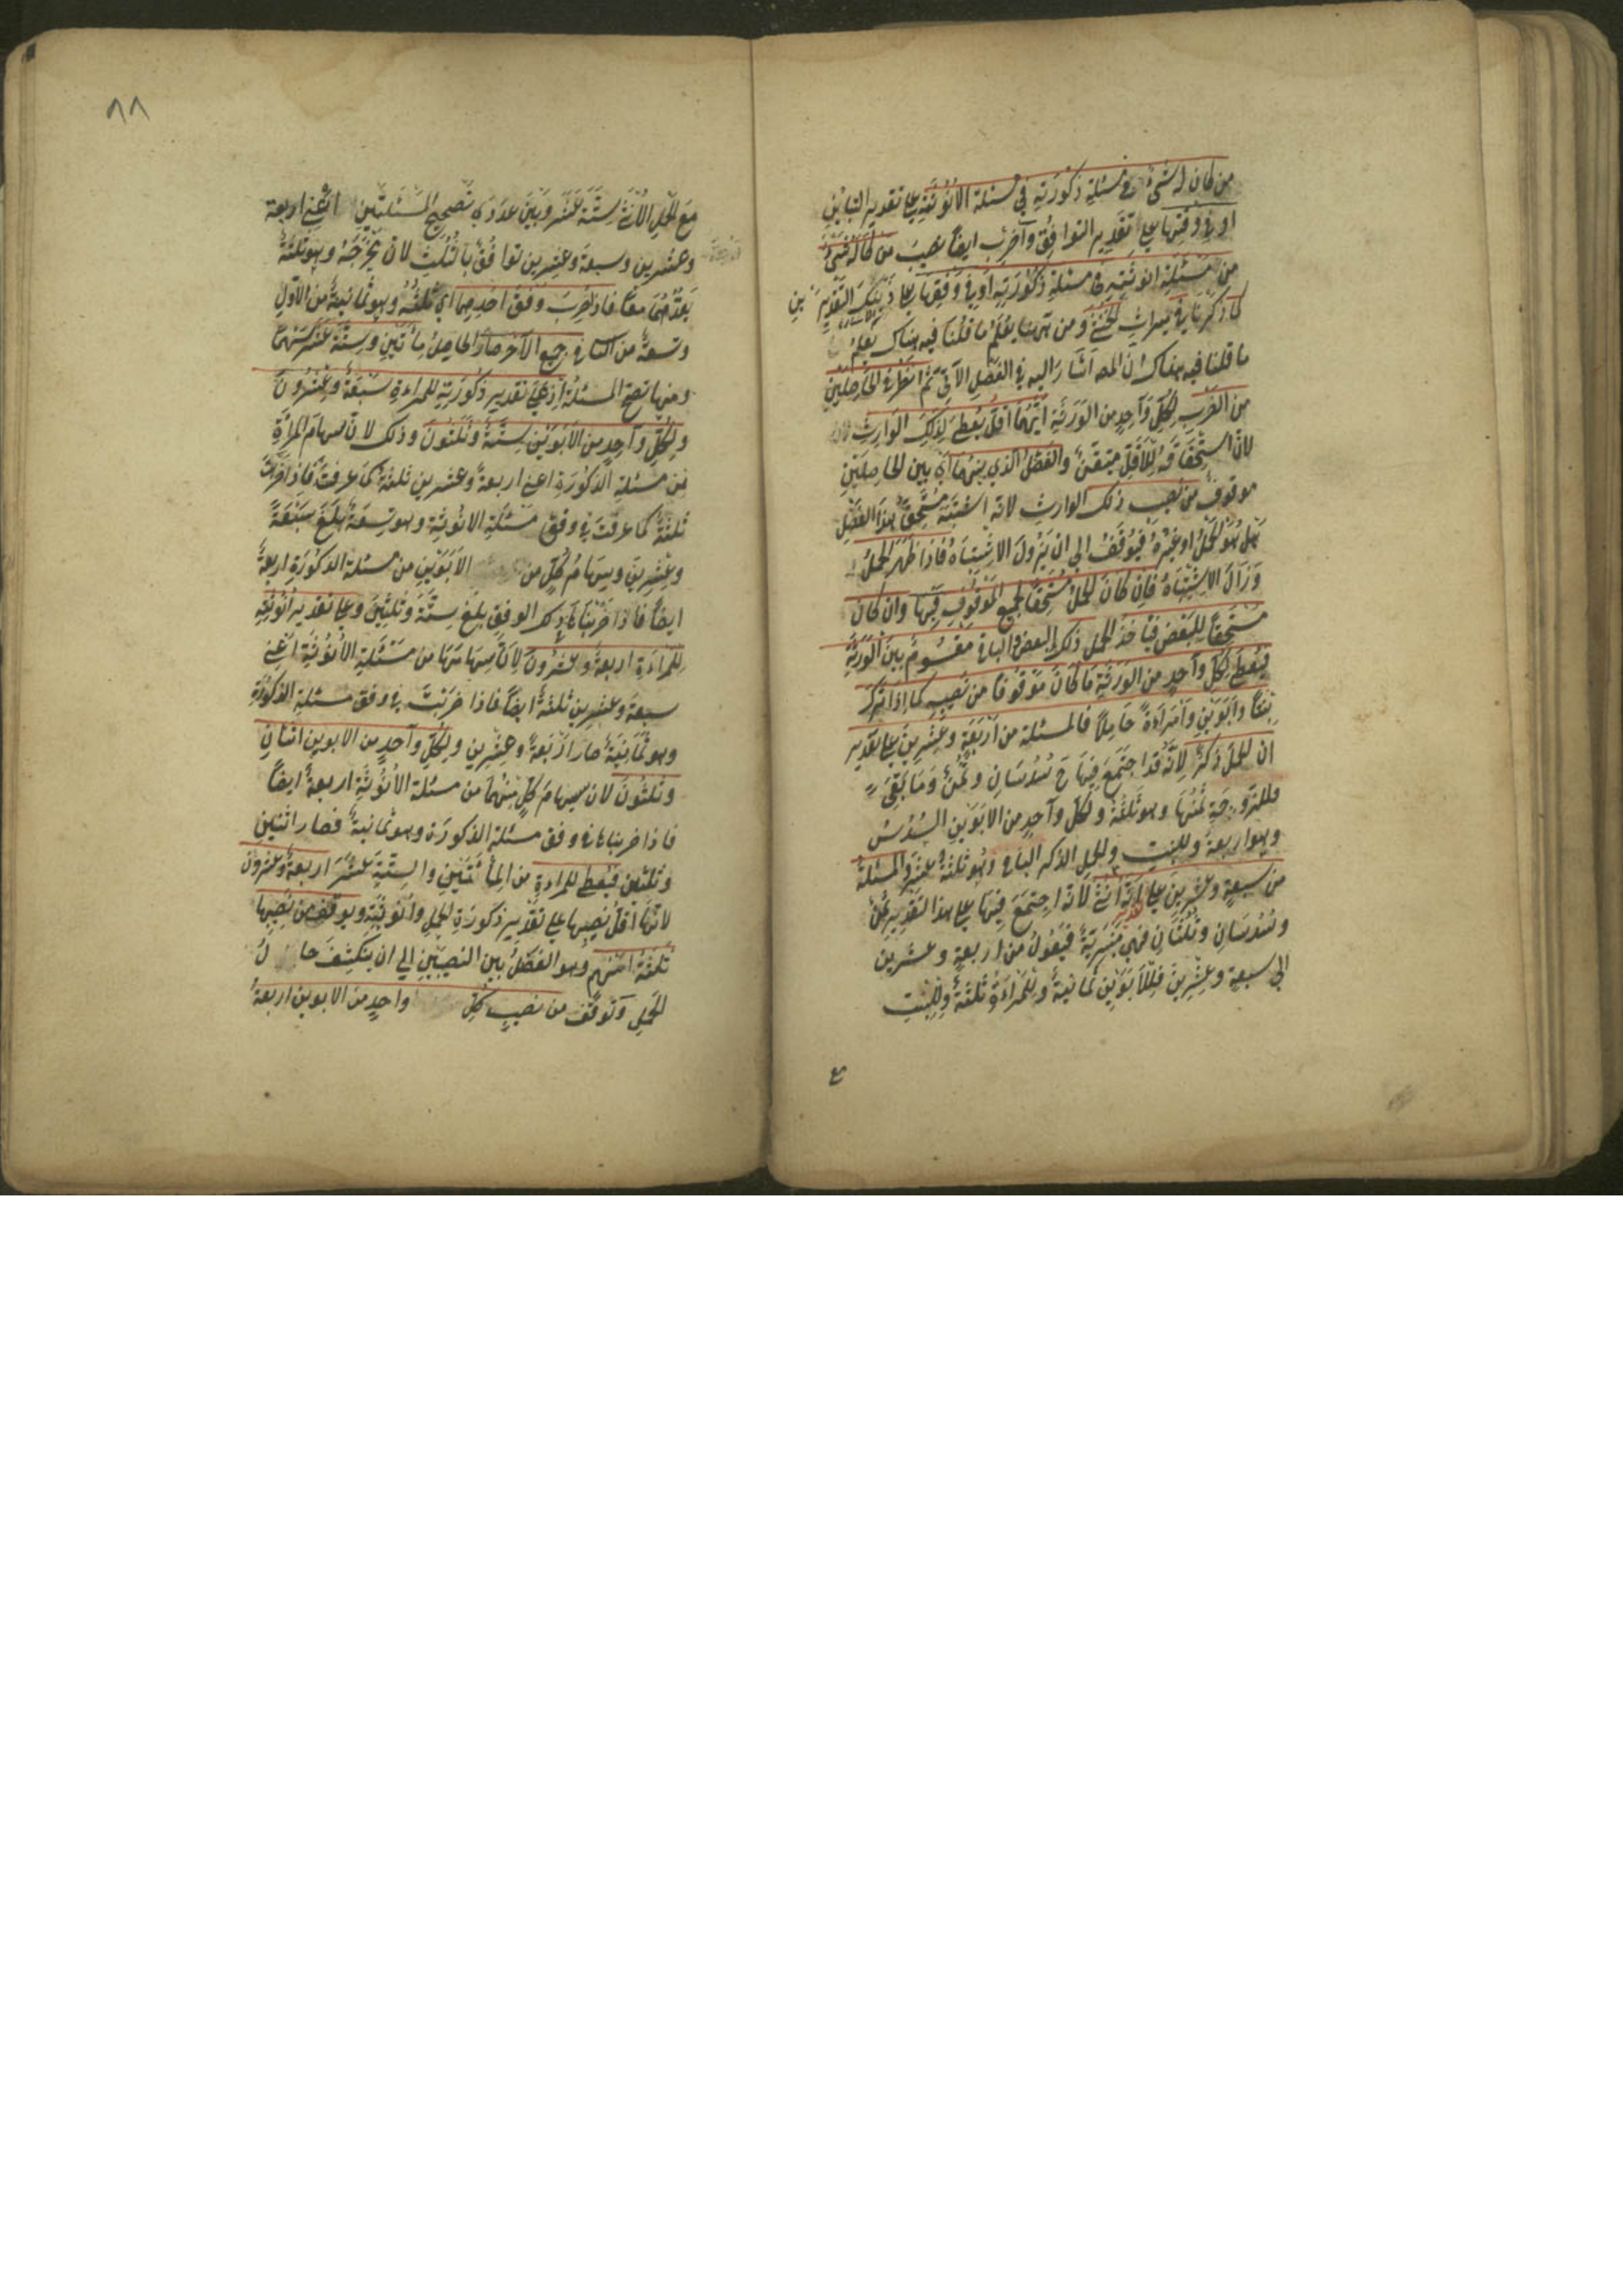 من كان له شيء من مسئلة ذكورته في مسئلة الانوثة على تقدير التباين
او في وفقها على تقدير التوافق واضرب ايضا نصيب من كان له شيء
من مسئلة انوثته في مسئلة ذكورته او في وفقها على ذينك التقديرين
كما ذكرنا في ميراث الخنثى ومن ههنا يعلم ما قلنا فيه هناك
ما قلنا فيه هناك ان المصـ اشار اليه في الفصل الآتي ثم انظر في الحاصلين
من الضرب لكل واحد من الورثة ايهما اقل يعطى لذلك الوارث
لان استحقاقه للاقل متيقن والفضل الذي بينهما اي بين الحاصلين
موقوف من نصيب ذلك الوارث لانه اشتبه مستحق هذا الفضل
هل هو الحمل او غيره فيوقف الى ان يزول الاشتباه فاذا ظهر الحمل
وزال الاشتباه فان كان الحمل مستحقا لجميع الموقوف فبها وان كان
مستحقا للبعض فيأخذ الحمل ذلك البعض والباقي مقسوم بين الورثة
فيعطى لكل واحد من الورثة ما كان موقوفا من نصيبه كما اذا ترك
بنتا وابوين وامراءة حاملا فالمسئلة من اربعة وعشرين على تقدير
ان الحمل ذكر لانه قد اجتمع فيها ح سدسان وثمن وما بقي
فللزوجة ثمنها وهو ثلثة ولكل واحد من الابوين السدس
وهو اربعة وللبنت وللحمل الذكر الباقي وهو ثلثة عشر والمسئلة
من سبعة وعشرين على انه انثى لانه اجتمع فيها على هذا التقدير ثمن
وسدسان وثلثان فهي منبرية فيعول من اربعة وعشرين
الى سبعة وعشرين فللابوين ثمانية وللمراءة ثلثة وللبنت
٨٨
مع الحمل الانثى ستة عشر وبين عددي تصحيح المسئلتين اعني اربعة
وعشرين وسبعة وعشرين توافق بالثلث لان مخرجه وهو ثلثة
يعدهما معا فاذا ضرب وفق احدهما اي ثلثه وهو ثمانية من الاول
وتسعة من الثاني في جميع الآخر صار الحاصل مأتين وستة عشر سهما
ومنها تصح المسئلة اذ على تقدير ذكورته للمراءة سبعة وعشرون
ولكل واحد من الابوين ستة وثلثون وذلك لان سهام المرأة
من مسئلة الذكورة اعني اربعة وعشرين ثلثة كما عرفت فاذا ضربت
ثلثة كما عرفت في وفق مسئلة الانوثة وهو تسعة بلغ سبعة
وعشرين وسهام كل من الابوين من مسئلة الذكورة اربعة
ايضا فاذا ضربناها في ذلك الوفق بلغ ستة وثلثين وعلى تقدير انوثته
للمراءة اربعة وعشرون لان سهامها من مسئلة الانوثة اعني
سبعة وعشرين ثلثة ايضا فاذا ضربت في وفق مسئلة الذكورة
وهو ثمانية صار اربعة وعشرين ولكل واحد من الابوين اثنان
وثلثون لان سهام كل منهما من مسئلة الانوثة اربعة ايضا
فاذا ضربناها في وفق مسئلة الذكورة وهو ثمانية فصار اثنين
وثلثين فيعطى للمراءة من المأتين والستة عشر اربعة وعشرون
لانها اقل نصيبها على تقدير ذكورة الحمل وانوثيته ويوقف من نصيبها
ثلثة اسهم وهو الفضل بين النصيبين الى ان ينكشف حال
الحمل وتوقف من نصيب كل واحد من الابوين اربعة